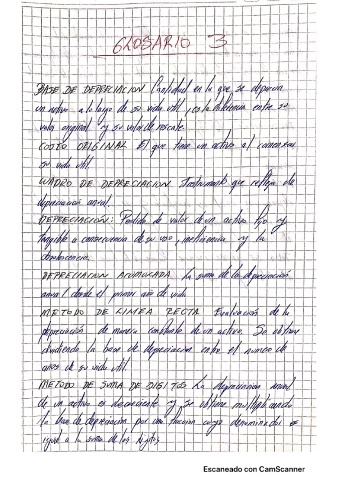 GLOSARIO 3
BASE DE DEPRECIACION Cantidad en la que se deprecia
un activo a lo largo de su vida util, es la diferencia entre su
valor original y su valor de rescate.
COSTO ORIGINAL El que tiene un activo al comenzar
su vida util
CUADRO DE DEPRECIACION Instrumento que refleja la
depreciación anual.
DEPRECIACION: Perdida de valor de un activo fijo y
tangible a consecuencia de su uso, ineficiencia y la
obsolescencia.
DEPRECIACION ACUMULADA La suma de la depreciación
anual desde el primer año de vida
METODO DE LINEA RECTA Evaluación de la
depreciación de manera constante de un activo. Se obtiene
dividiendo la base de depreciación entre el numero de
años de su vida util.
METODO DE SUMA DE DIGITOS La depreciación anual
de un activo es decreciente y se obtiene multiplicando
la base de depreciación por una fracción cuyo denominador es
igual a la suma de los digitos
Escaneado con CamScanner